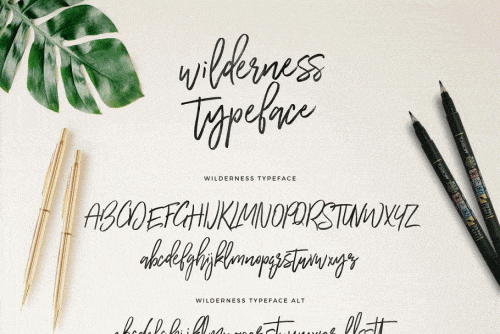 wilderness
Typeface
WILDERNESS TYPEFACE
ABCDEFGHIJKLMNOPQRSTUVWXYZ
abcdefghijklmnopqrstuvwxyz
WILDERNESS TYPEFACE ALT